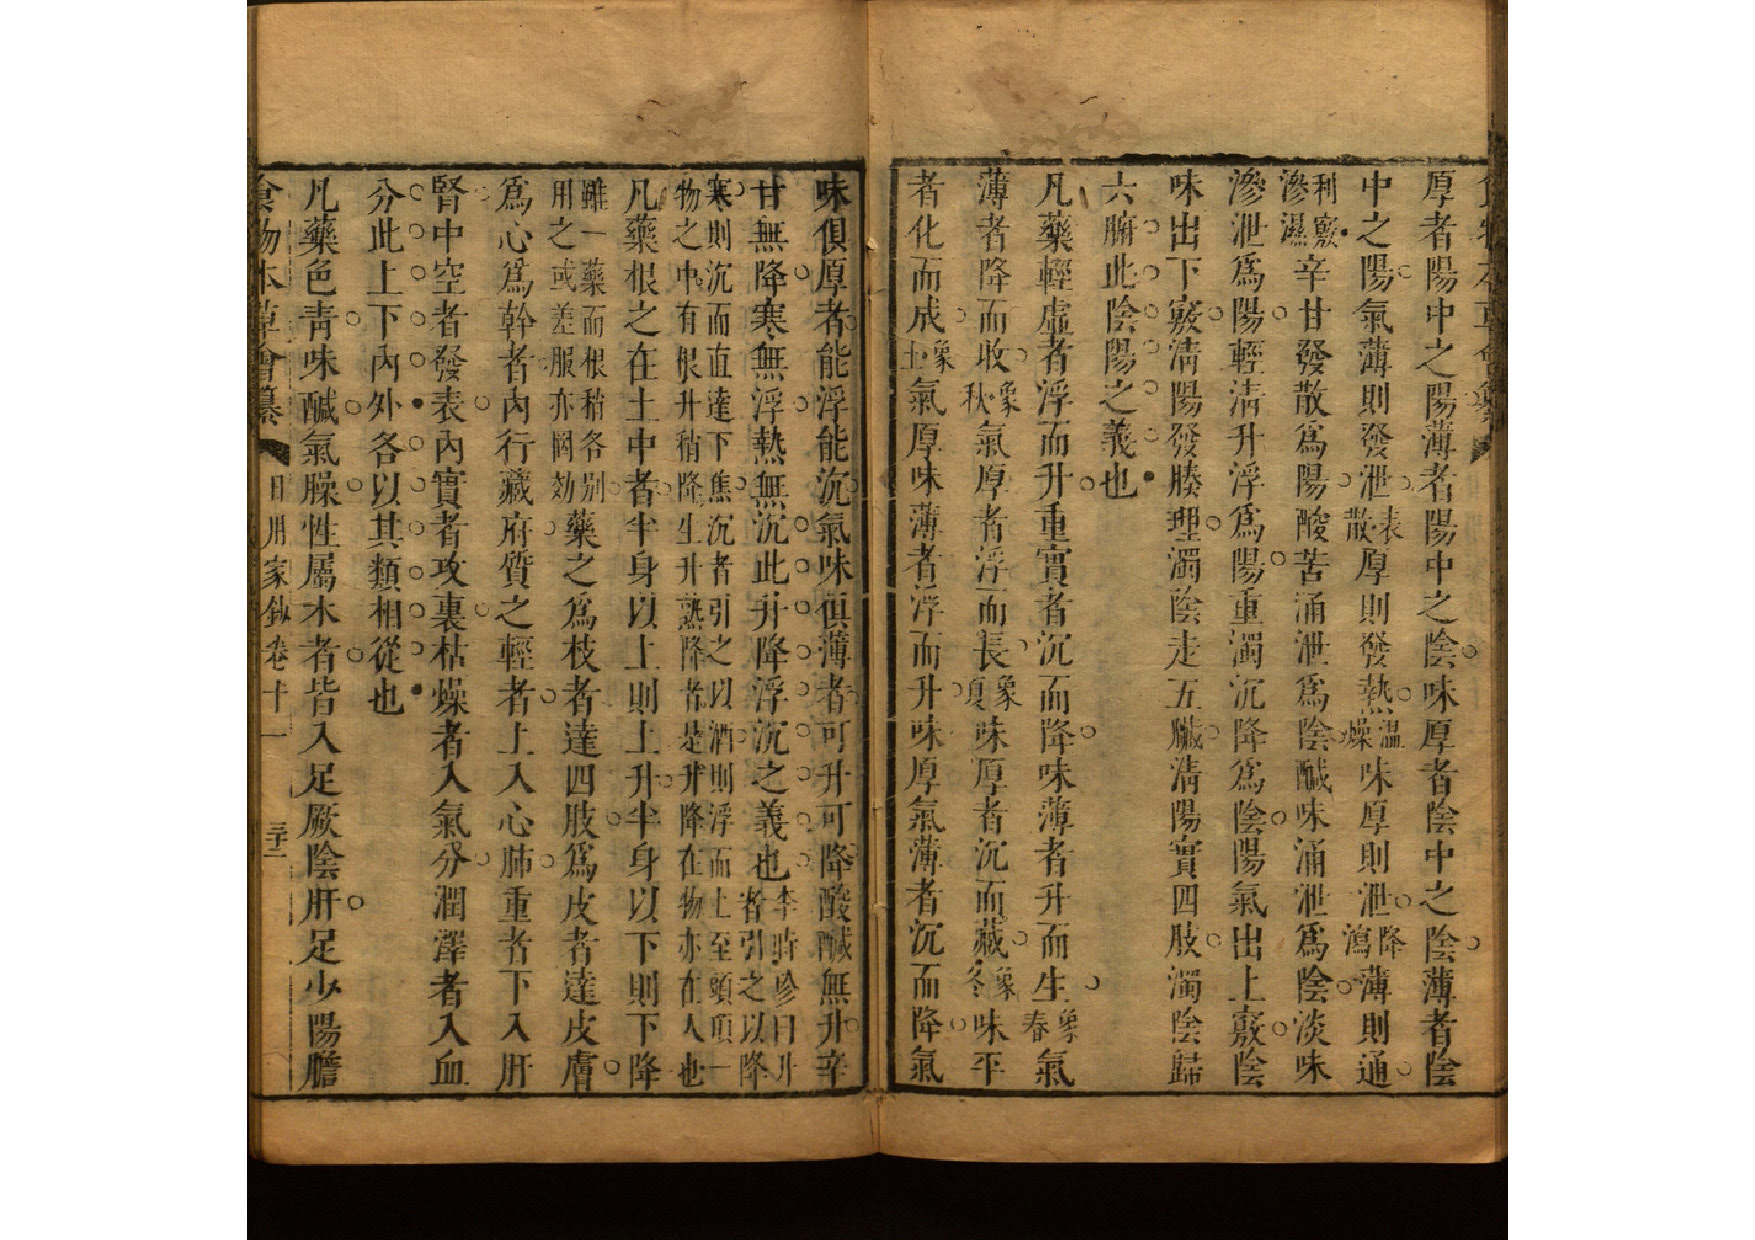 厚者陽中之陽薄者陽中之陰味厚者陰中之陰薄者陰
中之陽氣薄則發泄表散厚則發熱溫燥味厚則泄降瀉薄則通
利竅滲濕辛甘發散爲陽酸苦涌泄爲陰鹹味涌泄爲陰淡味
滲泄爲陽輕清升浮爲陽重濁沉降爲陰陽氣出上竅陰
味出下竅清陽發腠理濁陰走五臟清陽實四肢濁陰歸
六腑此陰陽之義也
凡藥輕虛者浮而升重實者沉而降味薄者升而生象春氣
薄者降而收象秋氣厚者浮而長象夏味厚者沉而藏象冬味平
者化而成象土氣厚味薄者浮而升味厚氣薄者沉而降氣
味俱厚者能浮能沉氣味俱薄者可升可降酸鹹無升辛
甘無降寒無浮熱無沉此升降浮沉之義也李時珍曰升者引之以降
寒則沉而直達下焦沉者引之以酒則浮而上至頭頂一
物之中有根升稍降生升熟降者是升降在物亦在人也
凡藥根之在土中者半身以上則上升半身以下則下降
雖一藥而根稍各別用之或差服亦罔効藥之爲枝者達四肢爲皮者達皮膚
爲心爲幹者內行藏府質之輕者上入心肺重者下入肝
腎中空者發表內實者攻裏枯燥者入氣分潤澤者入血
分此上下內外各以其類相從也
凡藥色靑味酸氣臊性屬木者皆入足厥陰肝足少陽膽
食物本草會纂 日用家鈔卷十一 三十二